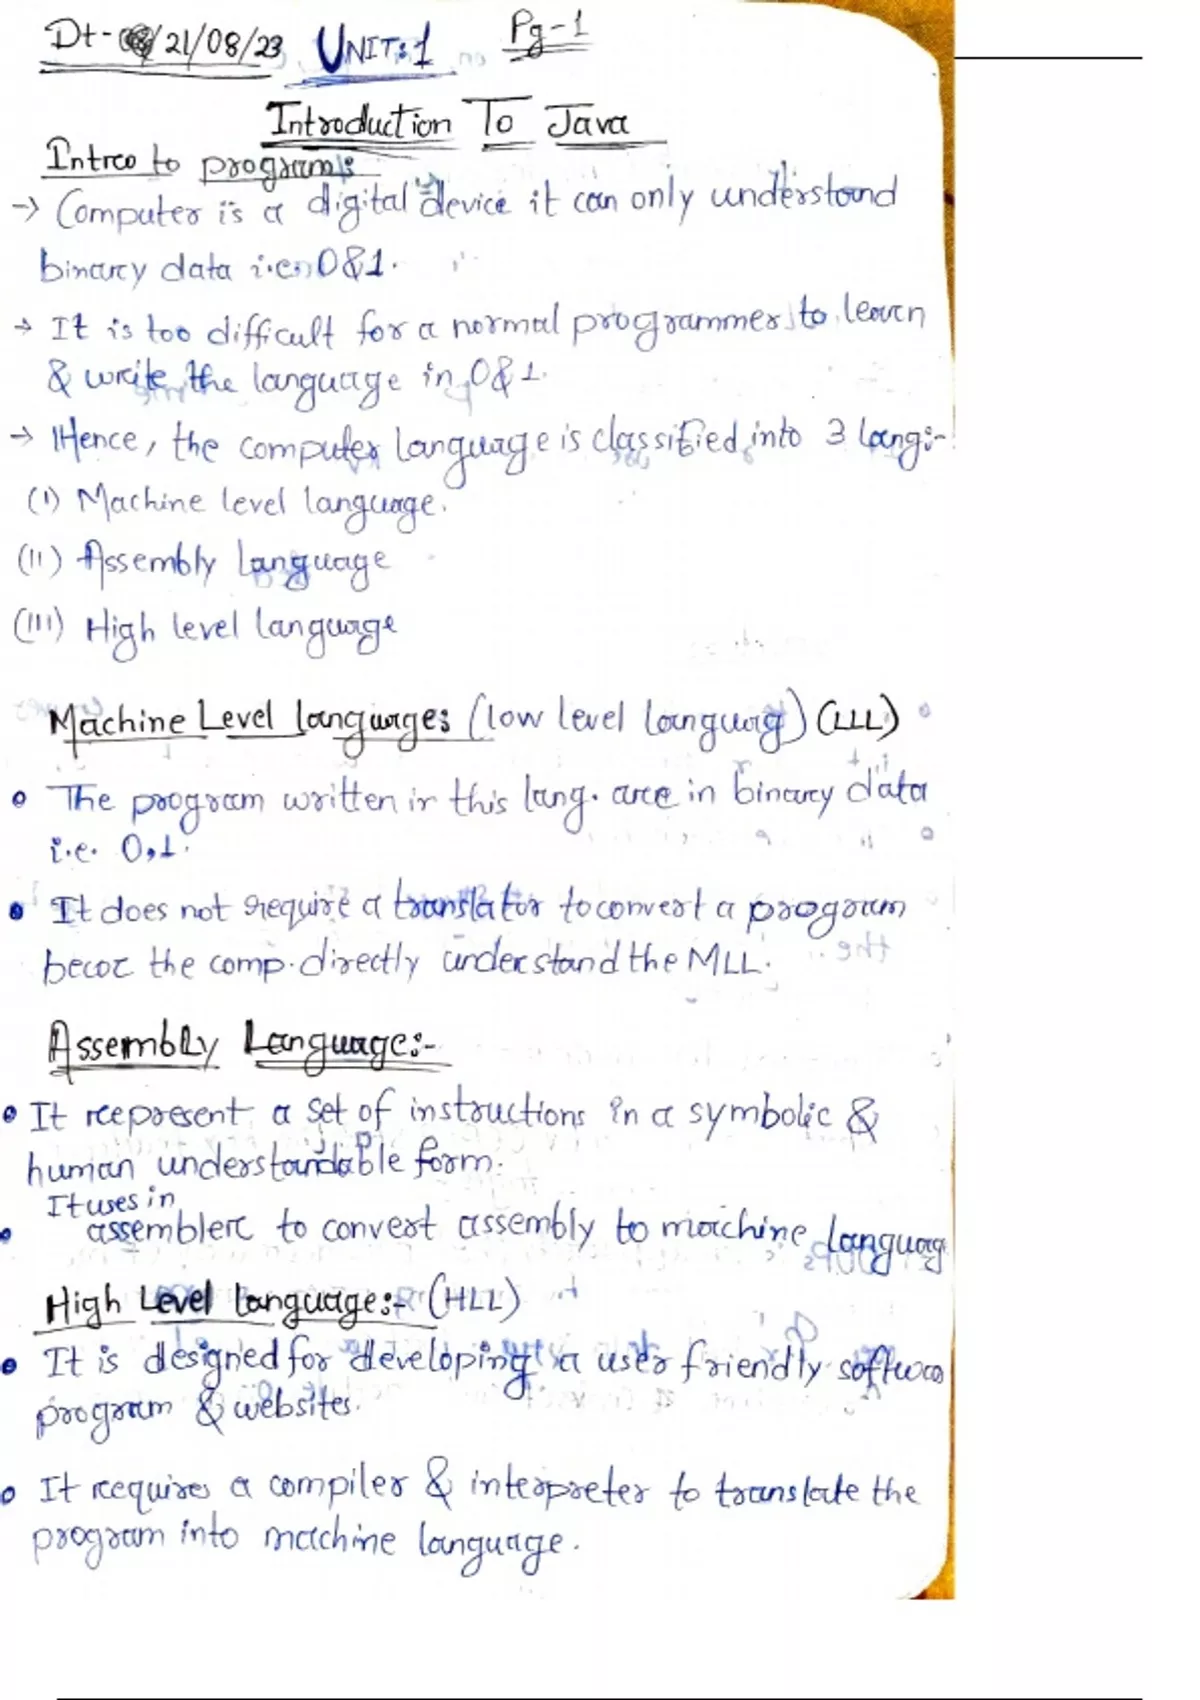 Dt- 21/08/23 UNIT:1 Pg-1
Introduction To Java
Intro to program:
→ Computer is a digital device it can only understand
binary data i.e. 0&1.
→ It is too difficult for a normal programmer to learn
& write the language in 0&1.
→ Hence, the computer language is classified into 3 lang:-
(I) Machine level language.
(II) Assembly language
(III) High level language
Machine Level languages (low level languag) (LLL)
• The program written in this lang. are in binary data
i.e. 0,1.
• It does not require a translator to convert a program
becoz the comp. directly understand the MLL.
Assembly Language:-
• It represent a set of instructions in a symbolic &
human understandable form.
It uses in
• assembler to convert assembly to machine languag
High Level language:- (HLL)
• It is designed for developing a user friendly softwa
program & websites.
• It requires a compiler & interpreter to translate the
program into machine language.